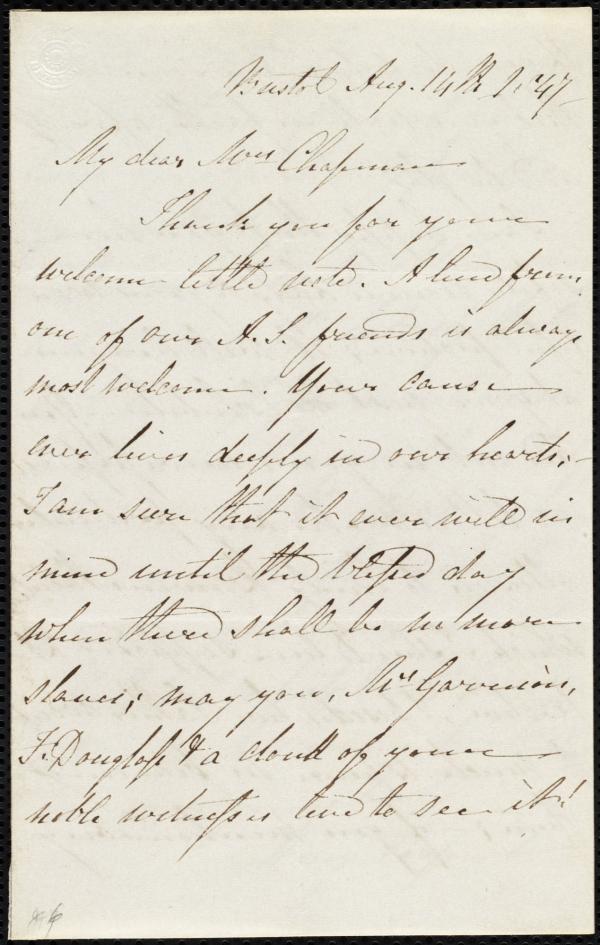 Bristol Aug. 14th 1847
My dear Mrs Chapman
Thank you for your
welcome little note. A line from
one of our A. S. friends is always
most welcome. Your cause
ever lives deeply in our hearts;–
I am sure that it ever will in
mine until the blessed day
when there shall be no more
slaves; may you, Mr Garrison,
F. Douglass & a cloud of your
noble witnesses live to see it!